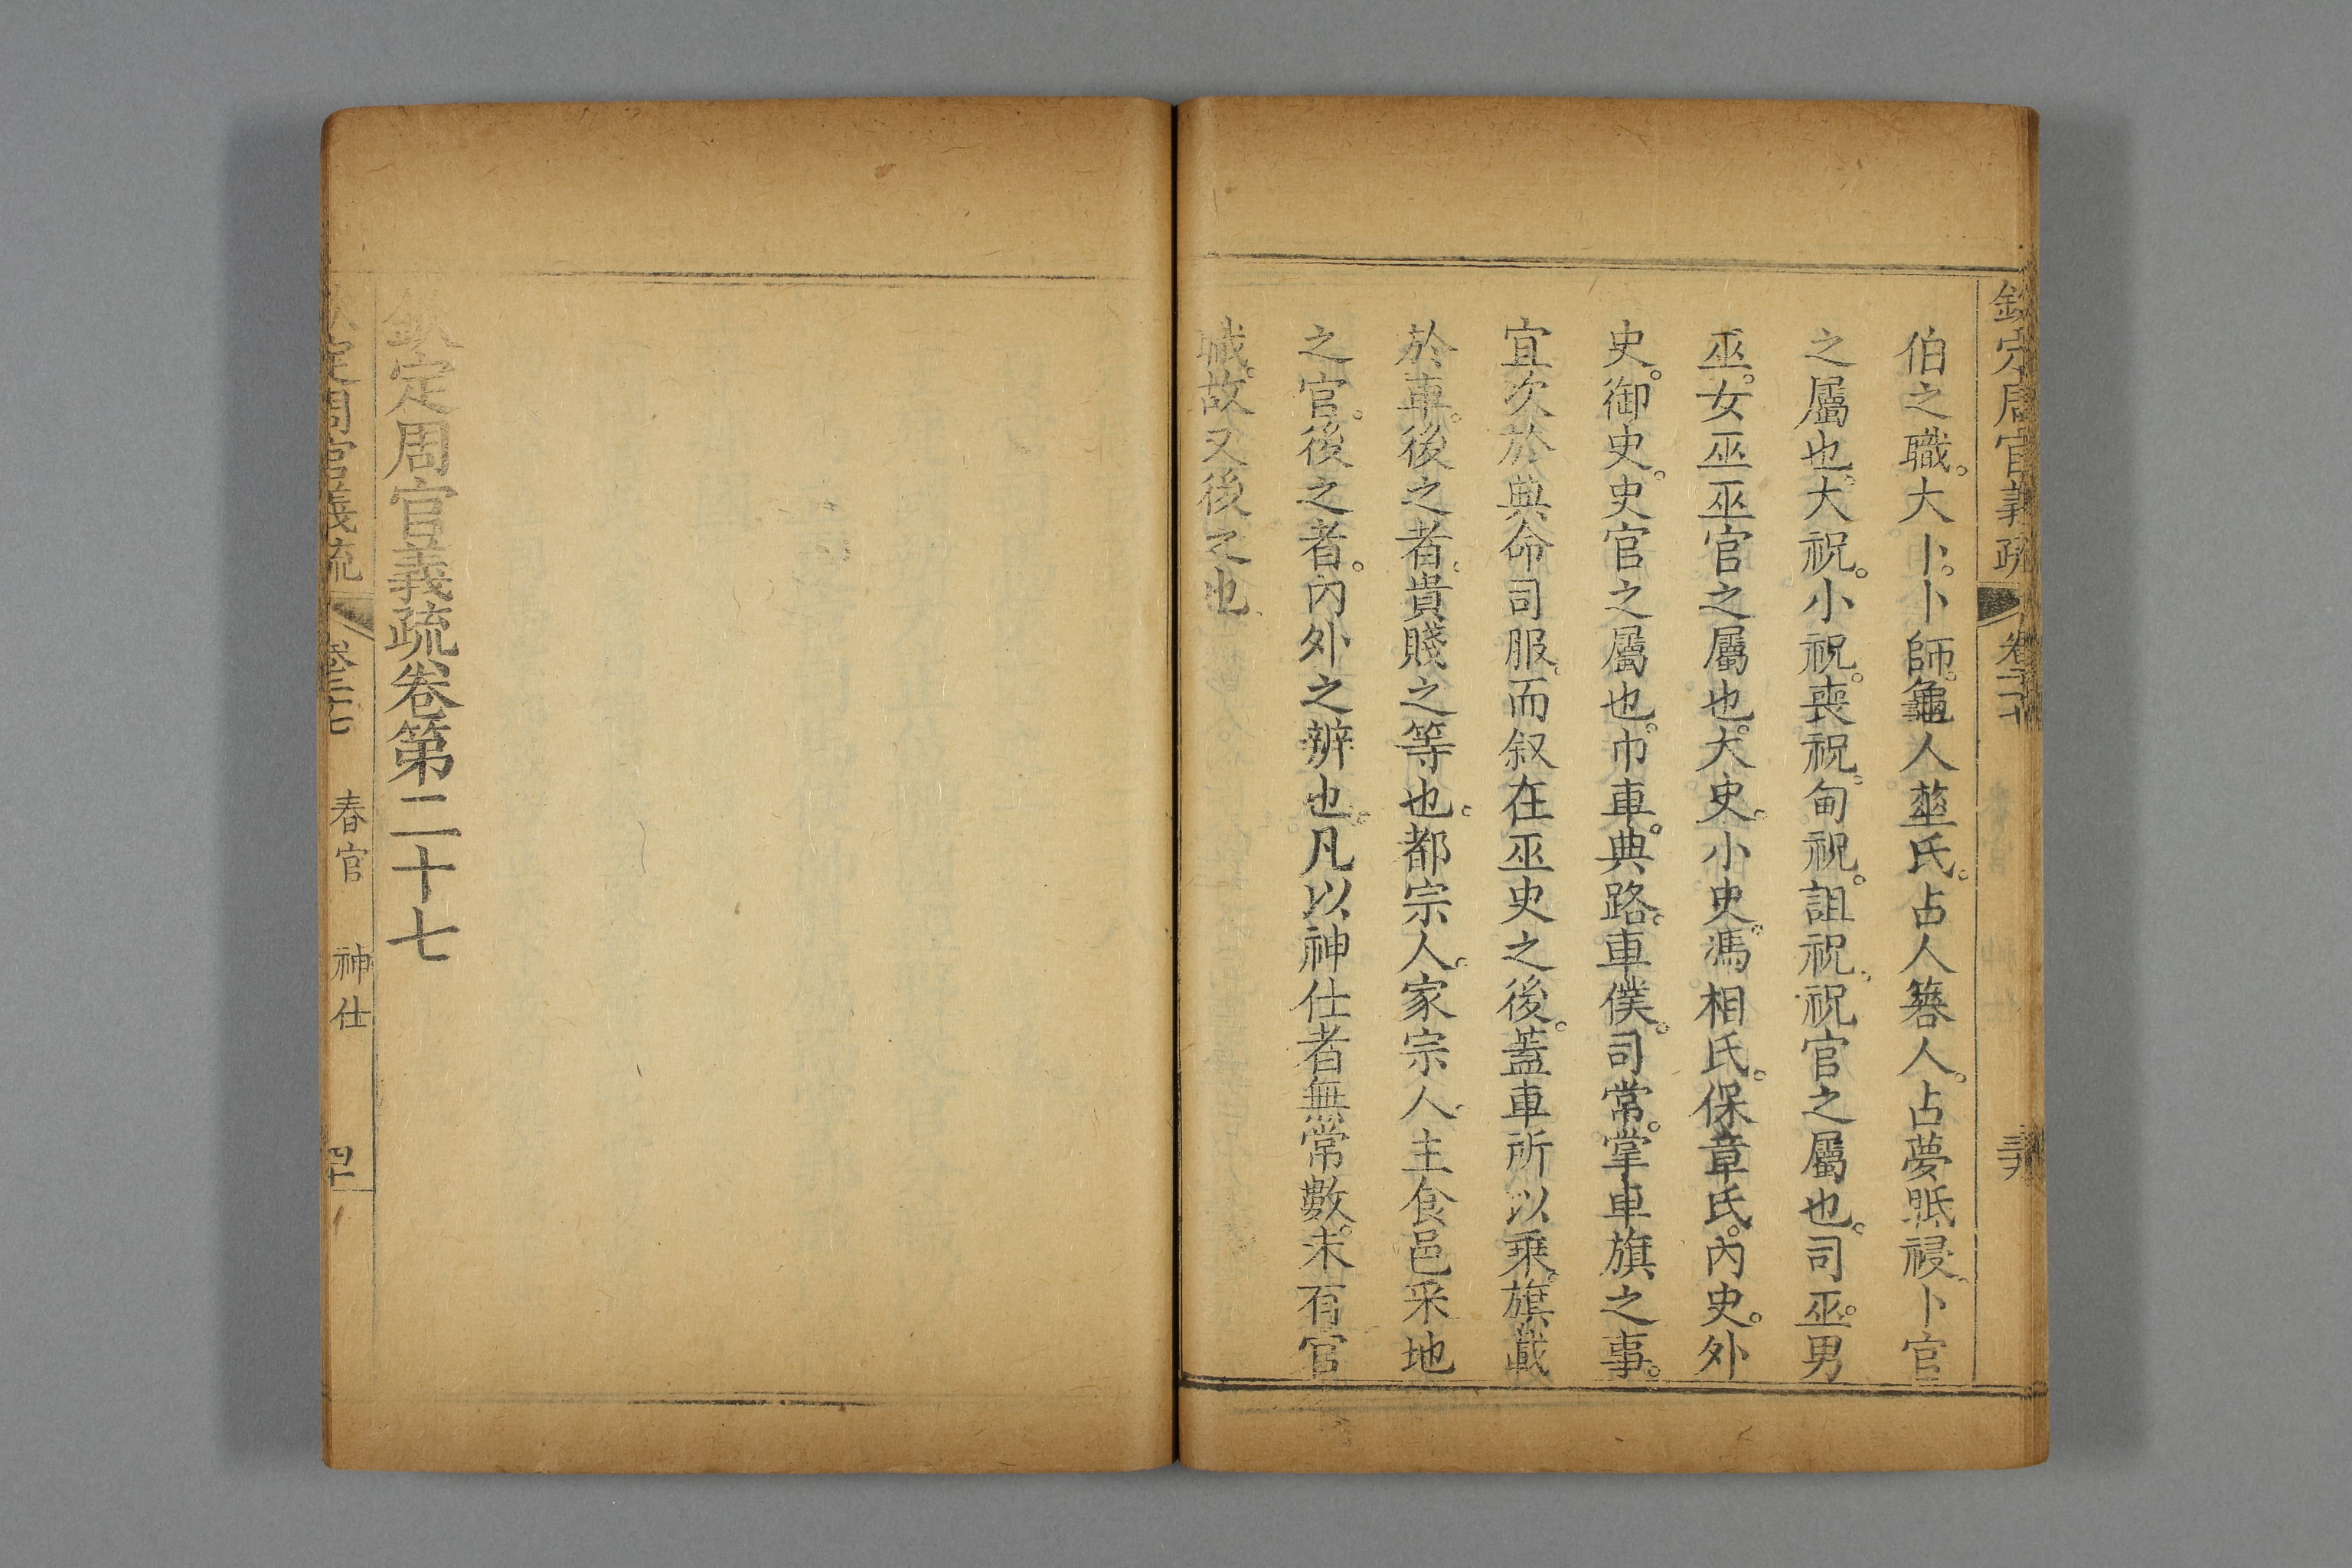 欽定周官義疏 卷二十七
伯之職。大卜。卜師。龜人。菙氏。占人。簭人。占夢。眡祲。卜官
之屬也。大祝。小祝。喪祝。甸祝。詛祝。祝官之屬也。司巫。男
巫。女巫。巫官之屬也。大史。小史。馮相氏。保章氏。內史。外
史。御史。史官之屬也。巾車。典路。車僕。司常。掌車旗之事。
宜次於典命司服。而叙在巫史之後。蓋車所以乘。旗載
於車。後之者。貴賤之等也。都宗人。家宗人。主食邑采地
之官。後之者。內外之辨也。凡以神仕者無常數。末有官
職。故又後之也。
欽定周官義疏卷第二十七
定周官義疏 卷二十七 春官 神仕 四十